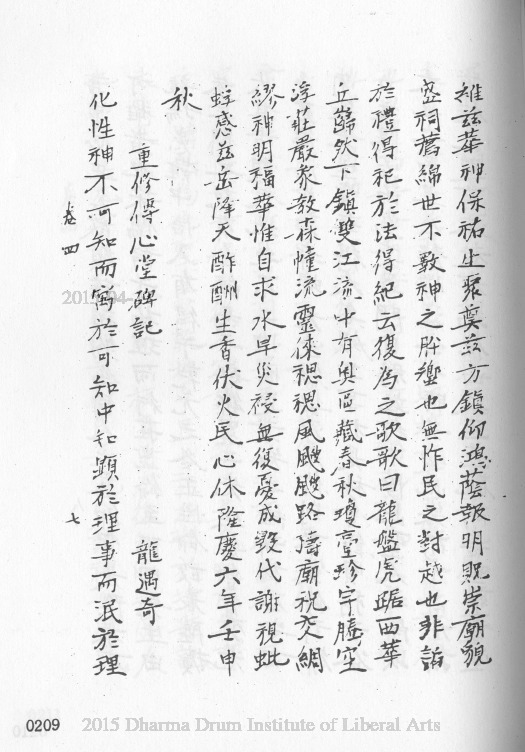 維玆華神保祐生聚奠玆方鎮仰鴻蔭報明貺崇廟貌
宓祠舊綿世不斁神之肸蠁也無怍民之對越也非諂
於禮得祀於法得紀云復為之歌歌曰龍盤虎踞西華
丘巋然下鎮雙江流中有奧區藏春秋瓊臺珍宇臨空
浮莊嚴象教森幢流靈徠禗禗風颼颼路濤廟祝交綢
繆神明福華惟自求水旱災祲無復憂成毀代謝視蚍
蜉感玆岳降天酢酬生香伏火民心休隆慶六年壬申
秋
重修傳心堂碑記
龍遇奇
化性神不可知而寓於可知中和顯於理事而泯於理
卷四
七
0209
2015 Dharma Drum Institute of Liberal Arts